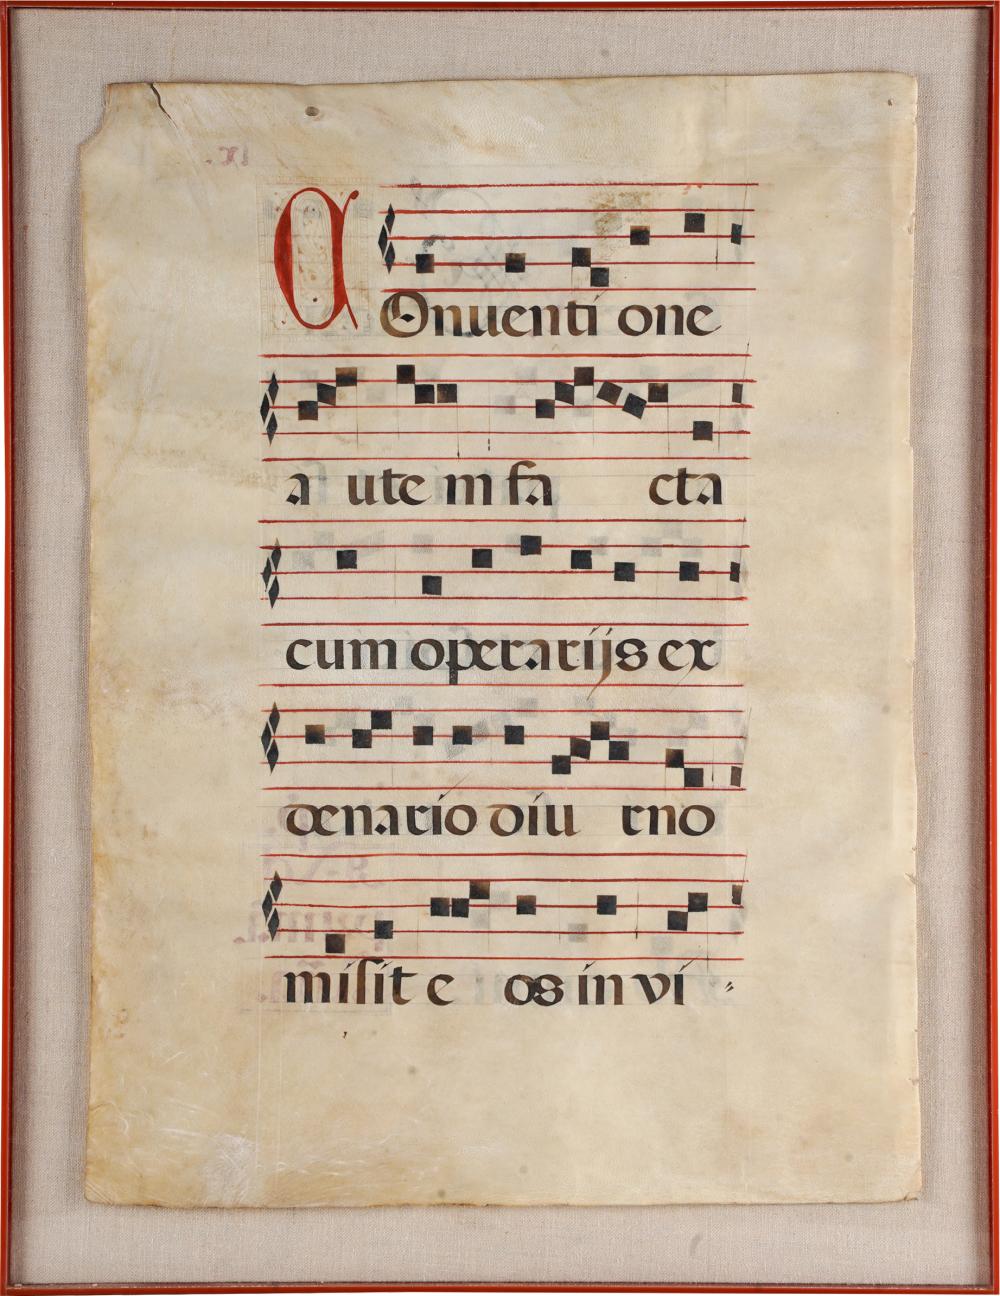 COnuenti one
a ute m fa cta
cum operarijs ex
denario diu rno
misit e os in vi